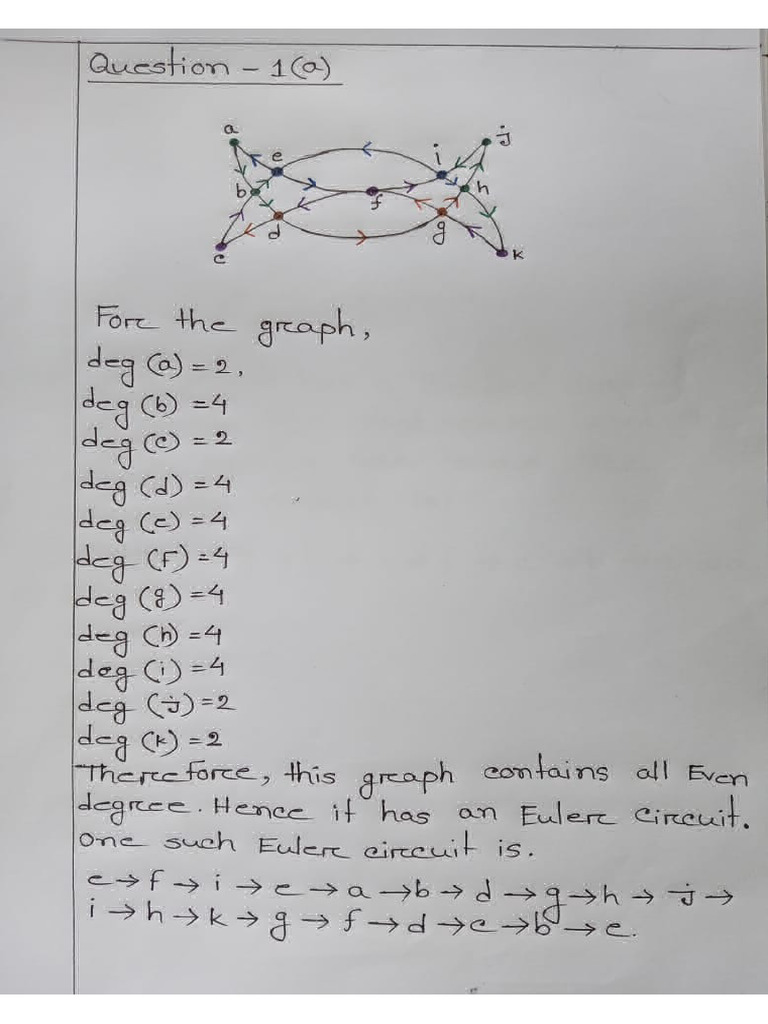 Question - 1(a)
a
j
e
i
b
f
h
d
g
c
k
For the graph,
deg (a) = 2,
deg (b) = 4
deg (c) = 2
deg (d) = 4
deg (e) = 4
deg (f) = 4
deg (g) = 4
deg (h) = 4
deg (i) = 4
deg (j) = 2
deg (k) = 2
Therefore, this graph contains all Even
degree. Hence it has an Euler circuit.
One such Euler circuit is.
e → f → i → e → a → b → d → g → h → j →
i → h → k → g → f → d → c → b → e.